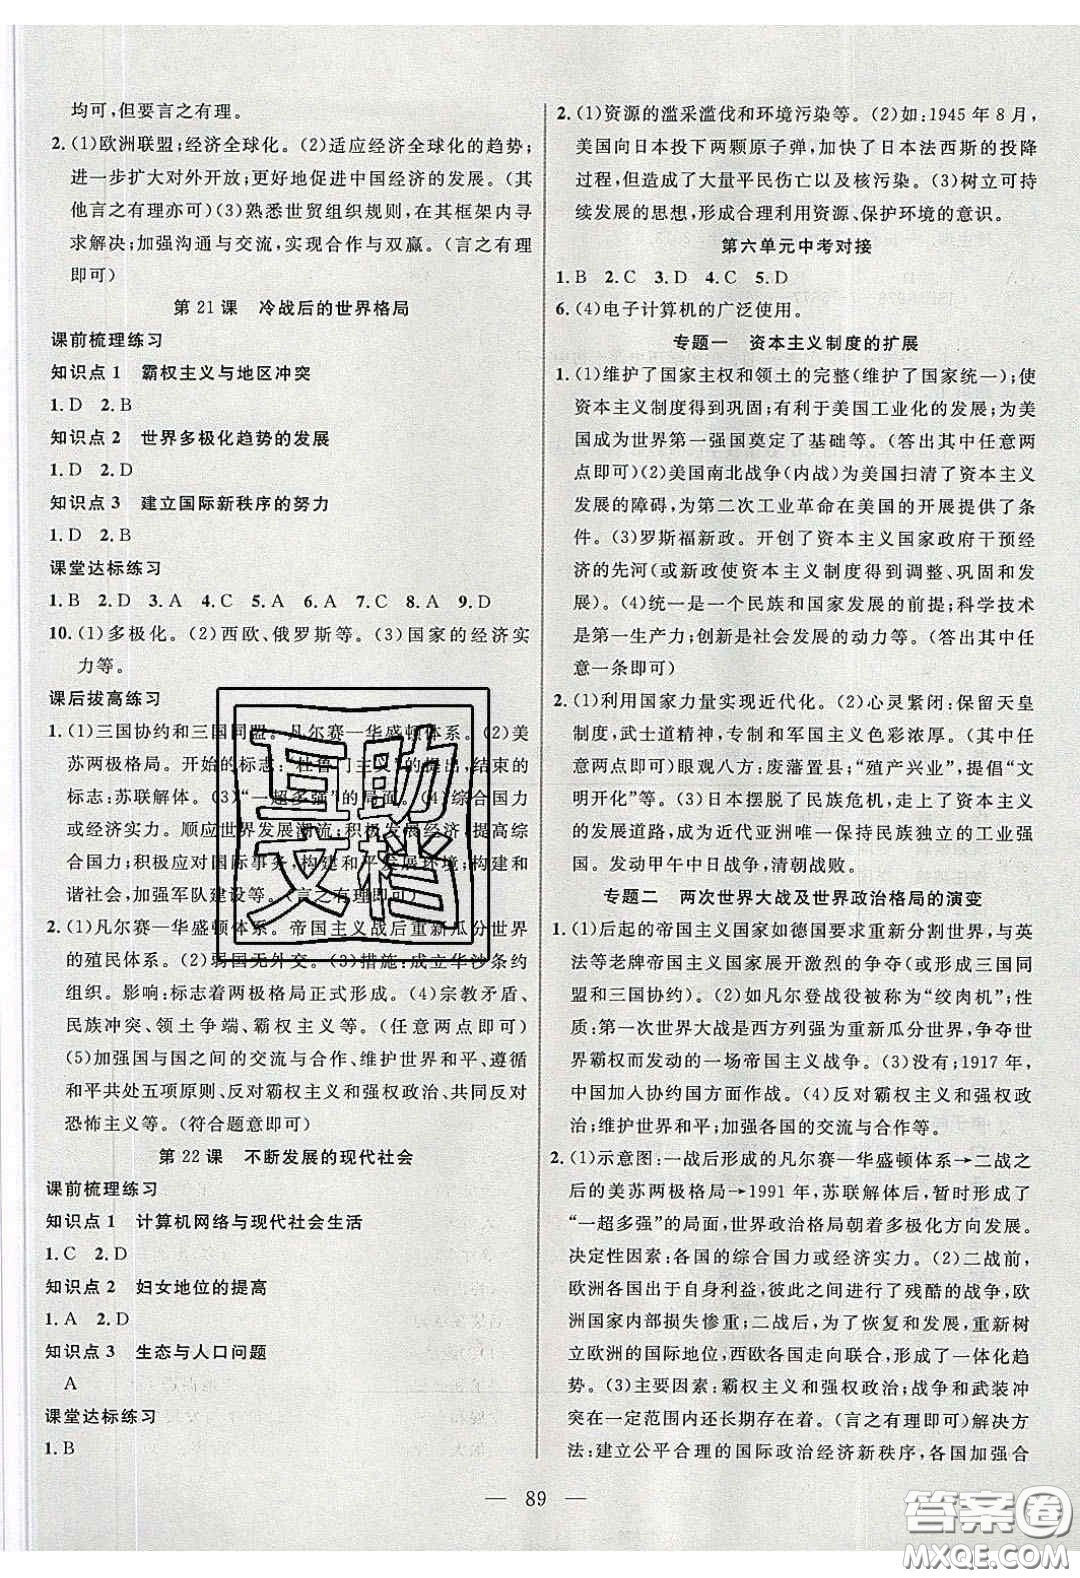 均可,但要言之有理。
2.(1)欧洲联盟;经济全球化。(2)适应经济全球化的趋势;
进一步扩大对外开放;更好地促进中国经济的发展。(其
他言之有理亦可)(3)熟悉世贸组织规则,在其框架内寻
求解决;加强沟通与交流,实现合作与双赢。(言之有理
即可)
第21课 冷战后的世界格局
课前梳理练习
知识点1 霸权主义与地区冲突
1.D 2.B
知识点2 世界多极化趋势的发展
1.D 2.D
知识点3 建立国际新秩序的努力
1.D 2.B
课堂达标练习
1.B 2.D 3.A 4.C 5.C 6.A 7.C 8.A 9.D
10.(1)多极化。(2)西欧、俄罗斯等。(3)国家的经济实
力等。
课后拔高练习
1.(1)三国协约和三国同盟。凡尔赛—华盛顿体系。(2)美
苏两极格局。开始的标志:杜鲁门主义”的提出,结束的
标志:苏联解体。(3)“一超多强”的局面。(4)综合国力
或经济实力。顺应世界发展潮流;积极发展经济,提高综
合国力;积极应对国际事务,构建和平发展环境;构建和
谐社会,加强军队建设等。(言之有理即可)
2.(1)凡尔赛—华盛顿体系。帝国主义战后重新瓜分世界
的殖民体系。(2)弱国无外交。(3)措施:成立华沙条约
组织。影响:标志着两极格局正式形成。(4)宗教矛盾、
民族冲突、领土争端、霸权主义等。(任意两点即可)
(5)加强国与国之间的交流与合作、维护世界和平、遵循
和平共处五项原则、反对霸权主义和强权政治、共同反对
恐怖主义等。(符合题意即可)
第22课 不断发展的现代社会
课前梳理练习
知识点1 计算机网络与现代社会生活
1.C 2.D
知识点2 妇女地位的提高
1.A 2.D
知识点3 生态与人口问题
A
课堂达标练习
1.B
2.(1)资源的滥采滥伐和环境污染等。(2)如:1945年8月,
美国向日本投下两颗原子弹,加快了日本法西斯的投降
过程,但造成了大量平民伤亡以及核污染。(3)树立可持
续发展的思想,形成合理利用资源、保护环境的意识。
第六单元中考对接
1.B 2.C 3.D 4.C 5.D
6.(4)电子计算机的广泛使用。
专题一 资本主义制度的扩展
1.(1)维护了国家主权和领土的完整(维护了国家统一);使
资本主义制度得到巩固;有利于美国工业化的发展;为美
国成为世界第一强国奠定了基础等。(答出其中任意两
点即可)(2)美国南北战争(内战)为美国扫清了资本主义
发展的障碍,为第二次工业革命在美国的开展提供了条
件。(3)罗斯福新政。开创了资本主义国家政府干预经
济的先河(或新政使资本主义制度得到调整、巩固和发
展)。(4)统一是一个民族和国家发展的前提;科学技术
是第一生产力;创新是社会发展的动力等。(答出其中任
意一条即可)
2.(1)利用国家力量实现近代化。(2)心灵紧闭:保留天皇
制度,武士道精神,专制和军国主义色彩浓厚。(其中任
意两点即可)眼观八方:废藩置县;“殖产兴业”,提倡“文
明开化”等。(3)日本摆脱了民族危机,走上了资本主义
的发展道路,成为近代亚洲唯一保持民族独立的工业强
国。发动甲午中日战争,清朝战败。
专题二 两次世界大战及世界政治格局的演变
1.(1)后起的帝国主义国家如德国要求重新分割世界,与英
法等老牌帝国主义国家展开激烈的争夺(或形成三国同
盟和三国协约)。(2)如凡尔登战役被称为“绞肉机”;性
质:第一次世界大战是西方列强为重新瓜分世界,争夺世
界霸权而发动的一场帝国主义战争。(3)没有;1917年,
中国加入协约国方面作战。(4)反对霸权主义和强权政
治;维护世界和平;加强世界各国的交流与合作等。
2.(1)示意图:一战后形成的凡尔赛—华盛顿体系→二战之
后的美苏两极格局→1991年,苏联解体后,暂时形成了
“一超多强”的局面,世界政治格局朝着多极化方向发展。
决定性因素:各国的综合国力或经济实力。(2)二战前,
欧洲各国出于自身利益,彼此之间进行了残酷的战争,欧
洲国家内部损失惨重;二战后,为了恢复和发展,重新树
立欧洲的国际地位,西欧各国走向联合,形成了一体化趋
势。(3)主要因素:霸权主义和强权政治;战争和武装冲
突在一定范围内还长期存在着。(言之有理即可)解决方
法:建立公平合理的国际政治经济新秩序,各国加强合
— 89 —
互助
文档
答案圈
MXQE.COM